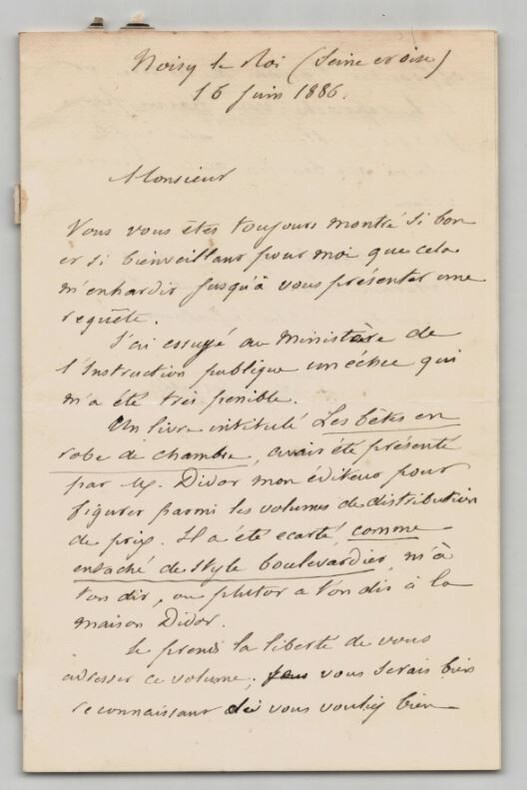 Noisy le Roi (Seine et oise)
16 Juin 1886.
Monsieur
Vous vous êtes toujours montré si bon
et si bienveillant pour moi que cela
m'enhardit jusqu'à vous présenter une
requête.
J'ai essuyé au Ministère de
l'Instruction publique un échec qui
m'a été très penible.
Un livre intitulé Les bêtes en
robe de chambre, avait été présenté
par M. Didot mon éditeur pour
figurer parmi les volumes de distribution
de prix. Il a été ecarté, comme
entaché de style boulevardier, m'a
t'on dit, ou plutot a t'on dit à la
maison Didot.
Je prends la liberté de vous
adresser ce volume; vous serais bien
reconnaissant si vous vouliez bien